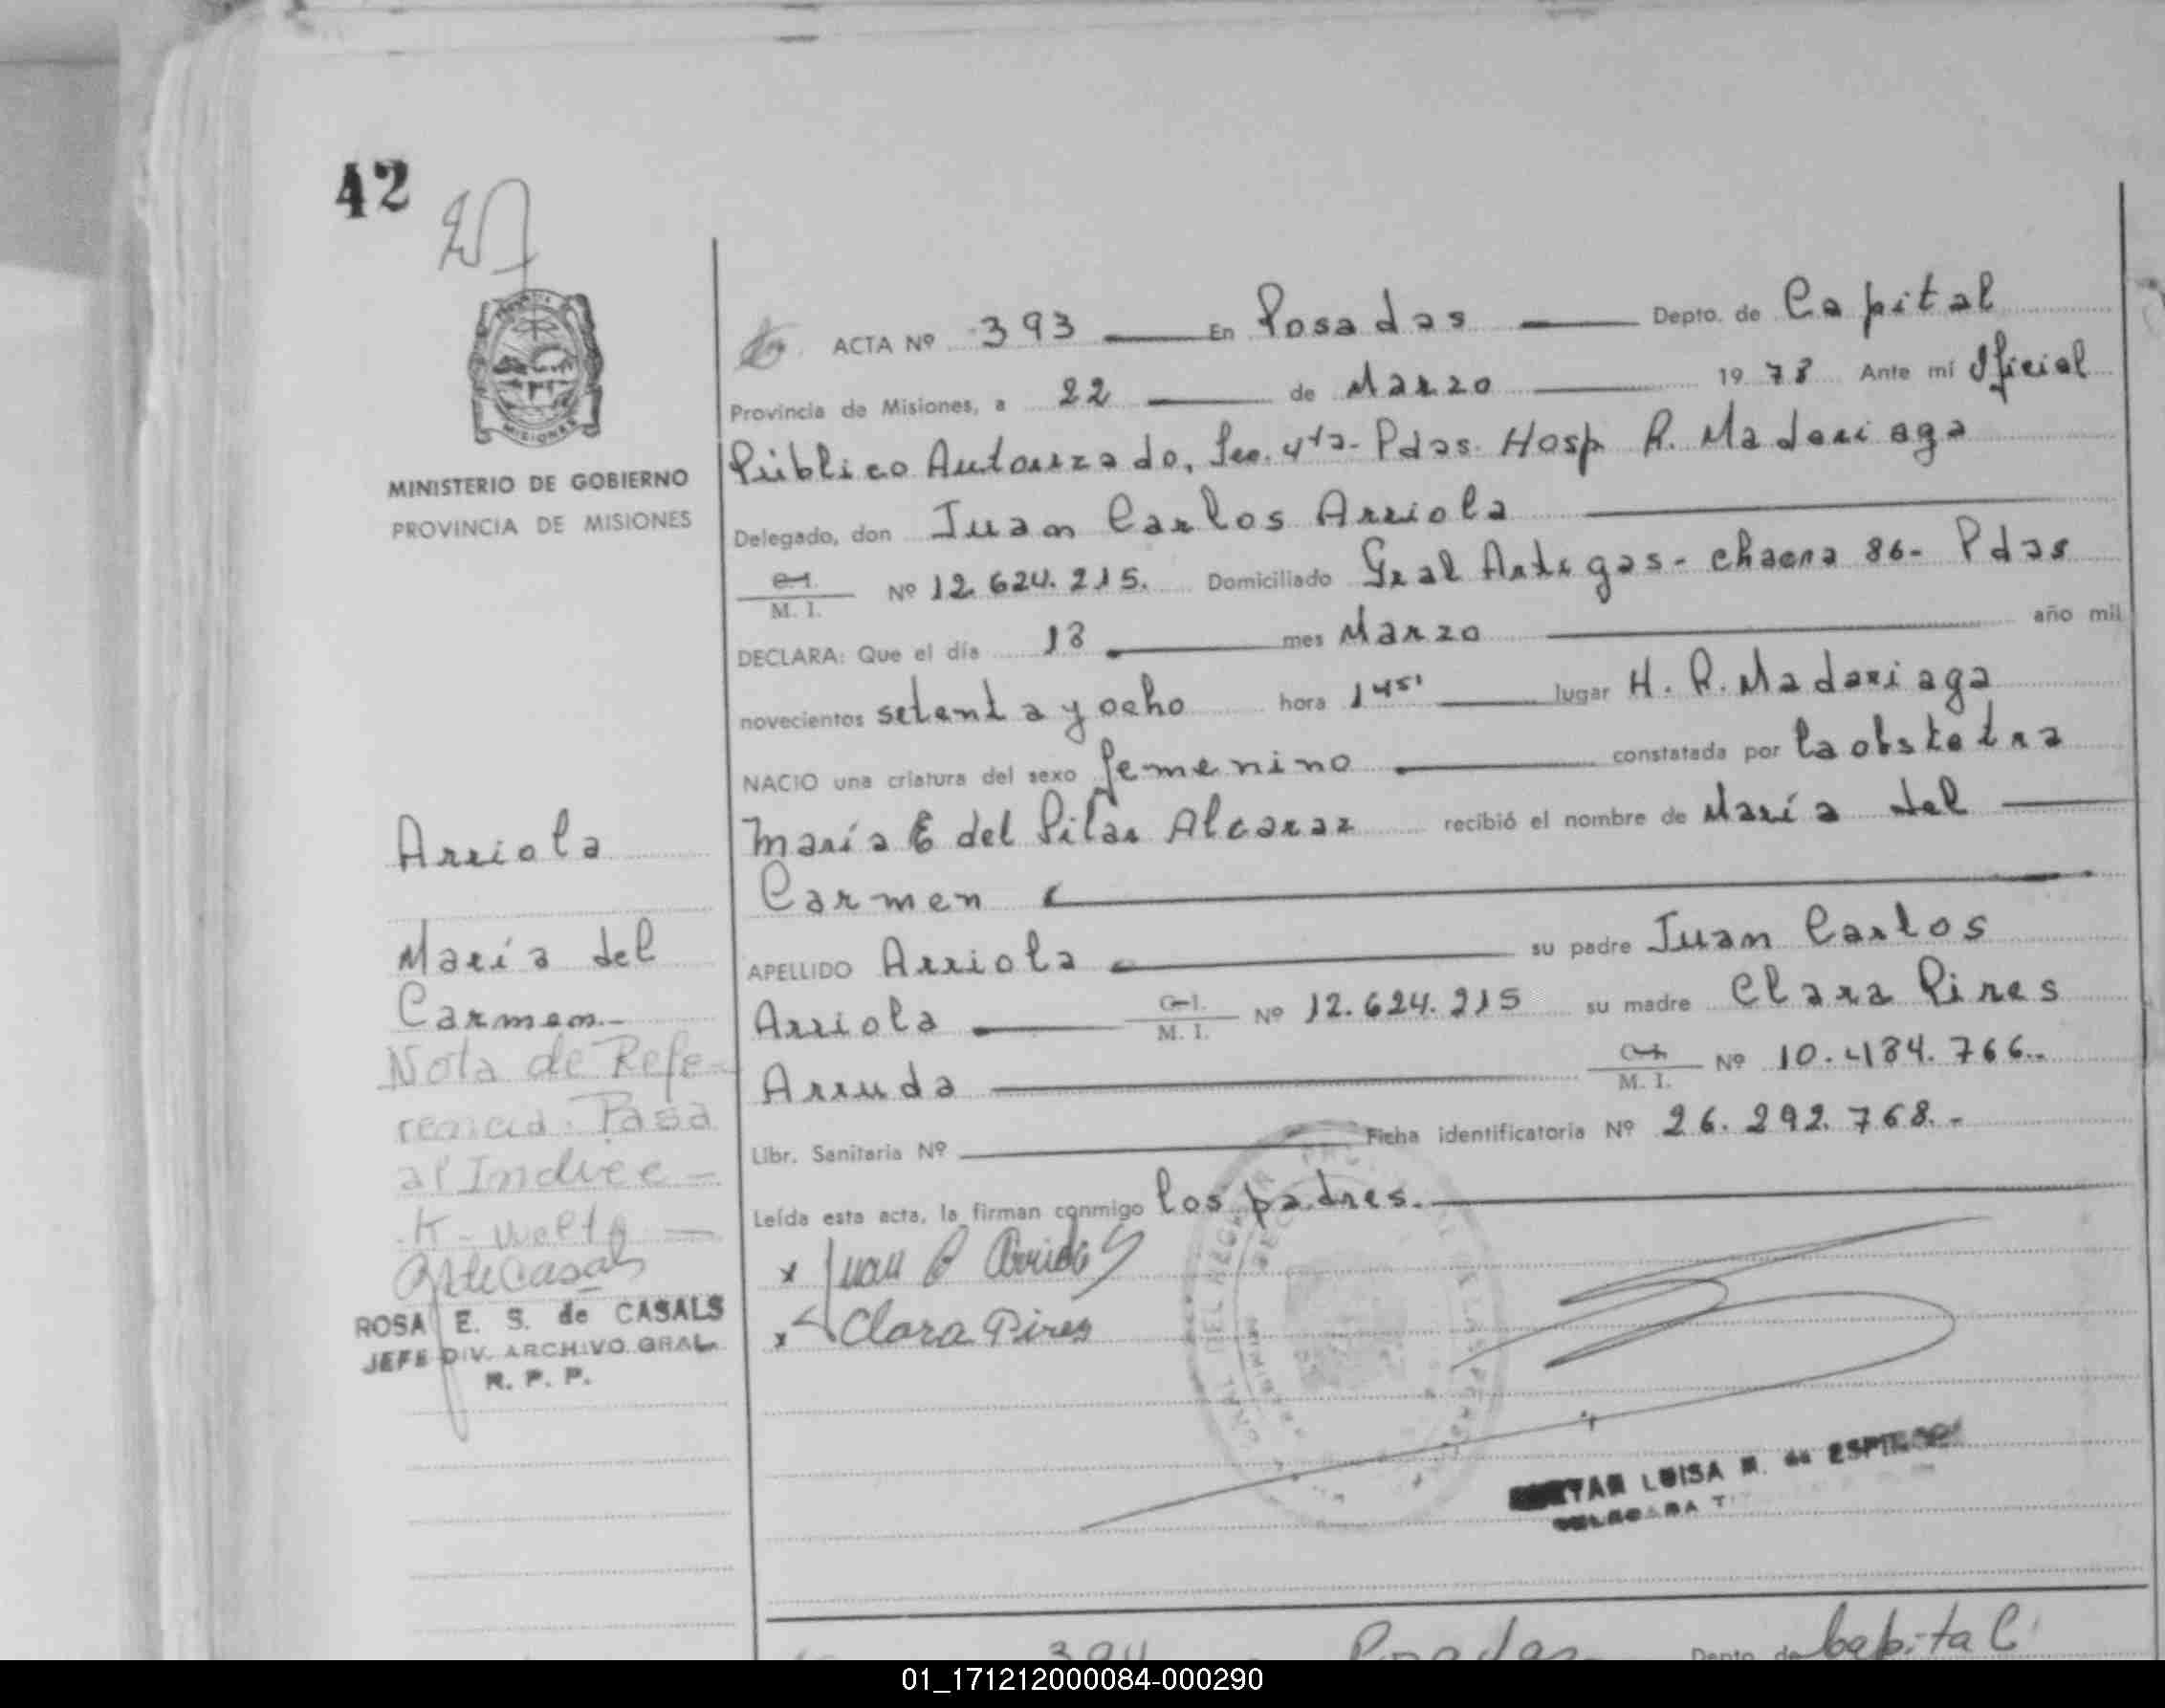 42
MINISTERIO DE GOBIERNO
PROVINCIA DE MISIONES
MISIONES
ACTA Nº 393 En Posadas Depto. de Capital
Provincia de Misiones, a 22 de Marzo 19 78 Ante mí Oficial
Público Autorizado, Sec. 4ta- Pdas. Hosp. R. Madariaga
Delegado, don Juan Carlos Arriola
C.I. M. I. Nº 12.624.215. Domiciliado Gral Artigas - chacra 86- Pdas
DECLARA: Que el día 18 mes Marzo año mil
novecientos setenta y ocho hora 1 45' lugar H. R. Madariaga
NACIO una criatura del sexo femenino constatada por la obstetra
María E del Pilar Alcaraz recibió el nombre de María del
Carmen
APELLIDO Arriola su padre Juan Carlos
Arriola C.I. M. I. Nº 12.624.215 su madre Clara Pires
Arruda M. I. Nº 10.484.766.
Libr. Sanitaria Nº Ficha identificatoria Nº 26.292.768.-
Leída esta acta, la firman conmigo los padres.
x Juan C
x Clara Pires
Arriola
María del
Carmen.-
Nota de Refe-
rencia. Pasa
al Indice -
ROSA E. S. de CASALS
JEFE DIV. ARCHIVO GRAL.
R. P. P.
LUISA M. de
394 Posadas Depto. de Capital
01_171212000084-000290